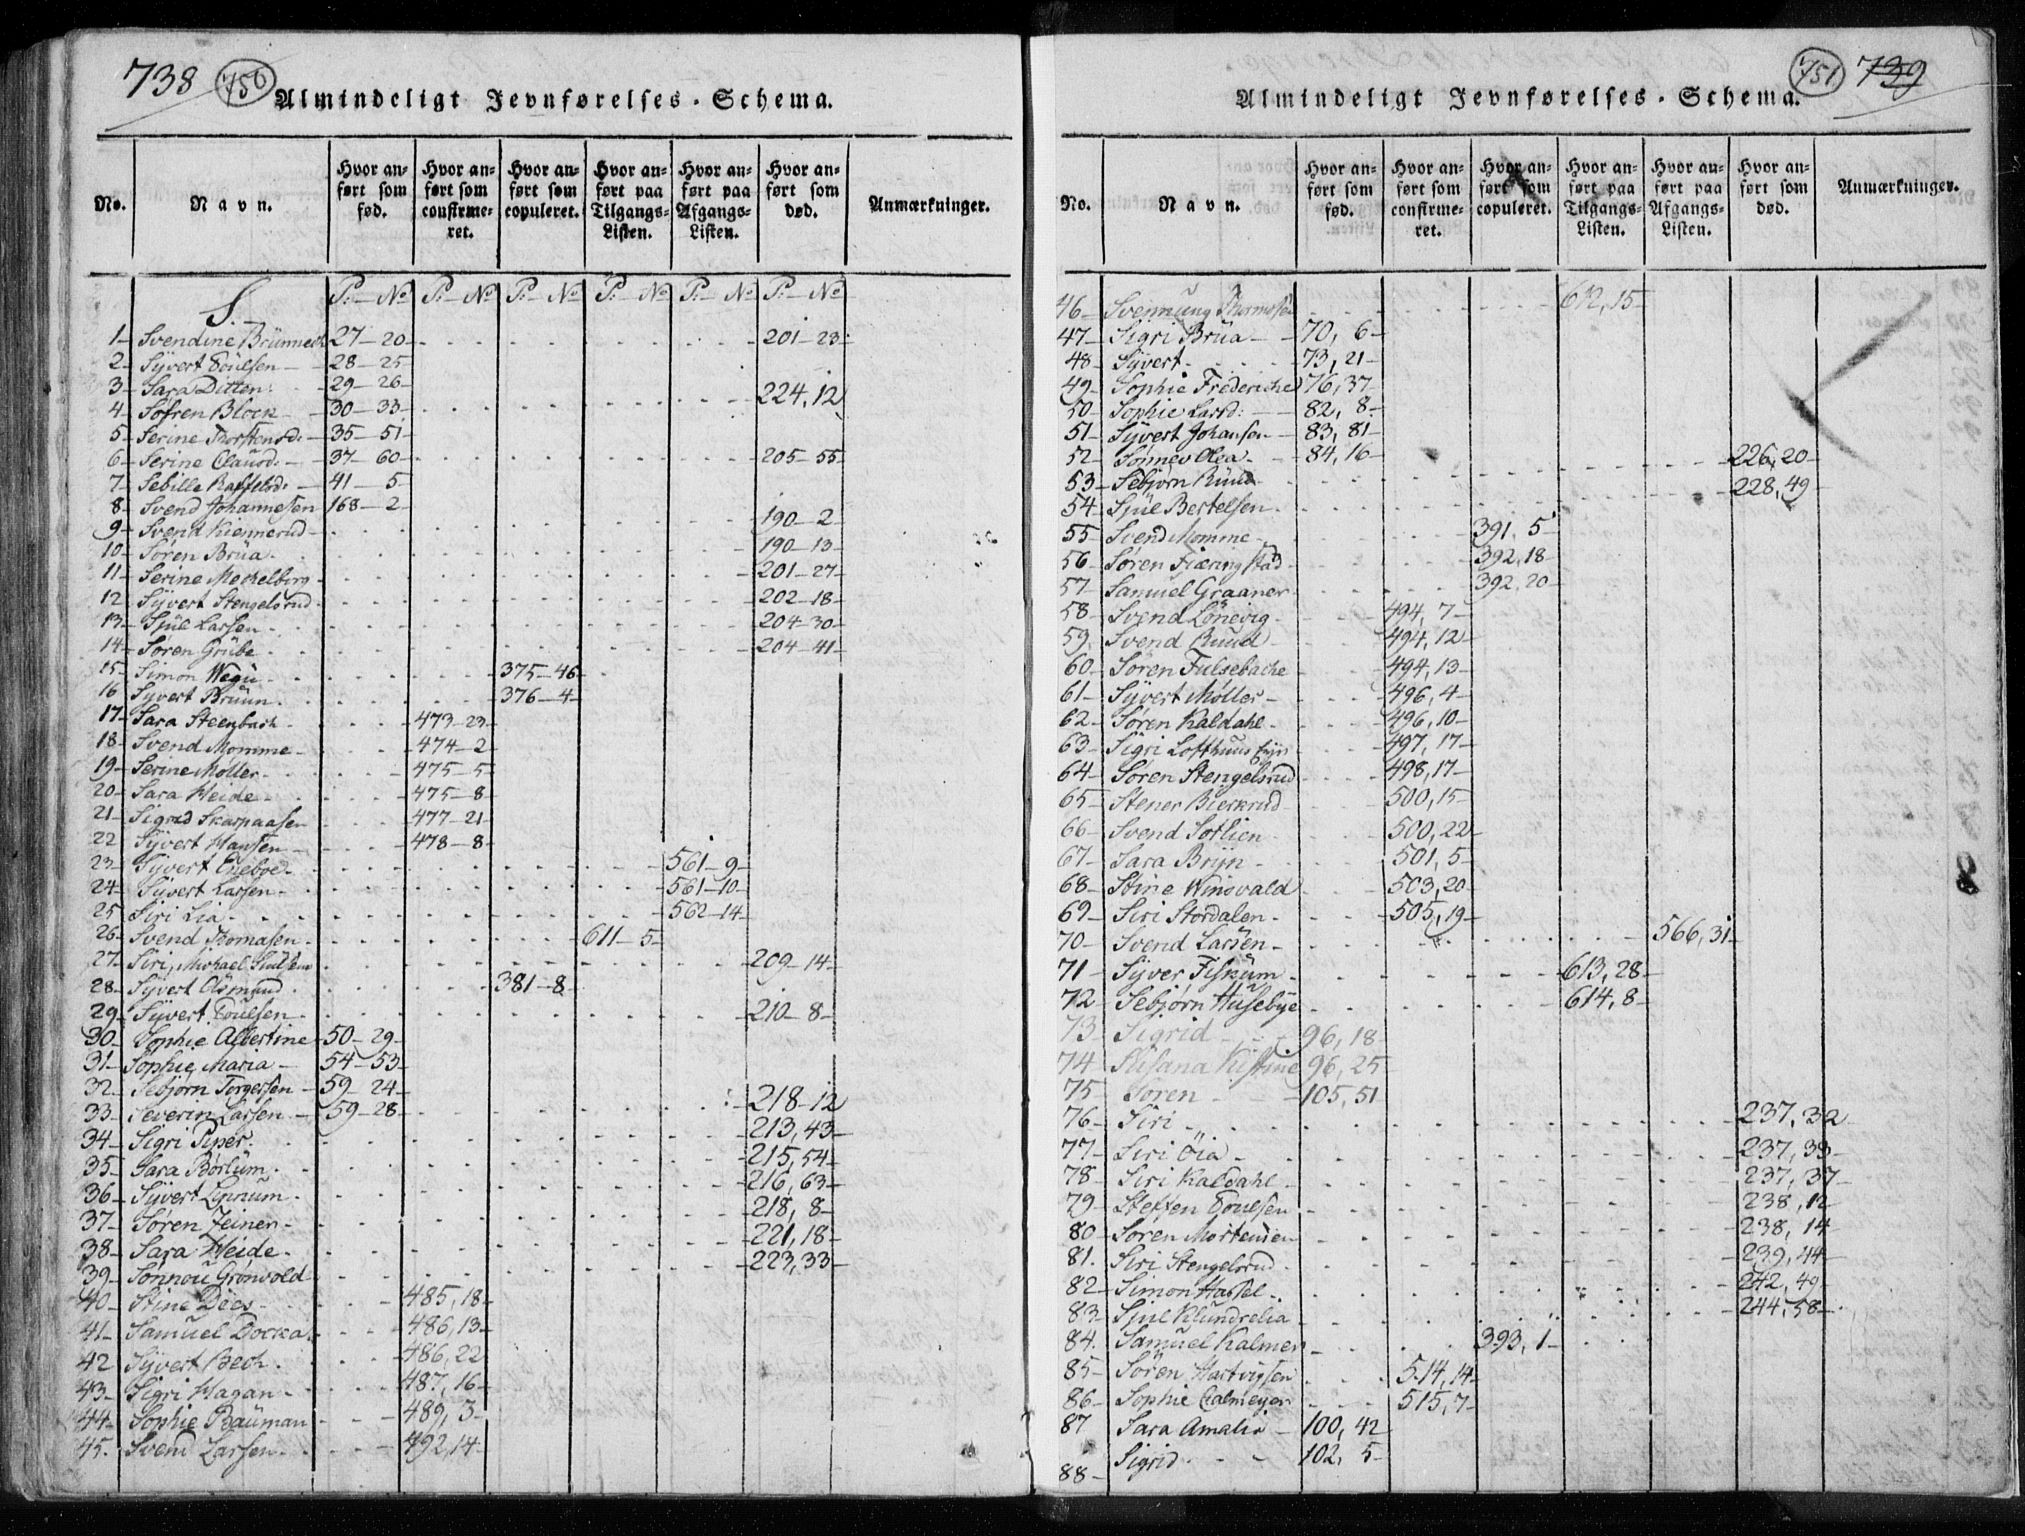 738 750
Almindeligt Jevnførelses-Schema.
No. Navn. Hvor anført som fød. Hvor anført som confirmeret. Hvor anført som copuleret. Hvor anført paa Tilgangs-Listen. Hvor anført paa Afgangs-Listen. Hvor anført som død. Anmærkninger.
S. P. – No P. – No P. – No P. – No P. – No P. – No
1 Svendine Brünnech 27–20 201–23
2 Sÿvert Poülsen 28–25
3 Sara Ditten 29–26
4 Søfren Block 30–33 224,12
5 Serine Thorstensd: 35–51
6 Serine Claüsd: 37–60 205–55
7 Sebille Raffelsd: 41–5
8 Svend Johannesen 168–2
9 Svend Kiennerud 190–2
10 Søren Brüa 190–13
11 Serine Mechelborg 201–27
12 Sÿvert Stengelsrud 202–18
13 Sjül Larsen 204–30
14 Søren Grübe 204–41
15 Simon Wegü 375–46
16 Sÿvert Brüün 376–4
17 Sara Steenbach 473–23
18 Svend Momme 474–2
19 Serine Møller 475–5
20 Sara Heide 475–8
21 Sigrid Skarpaasen 477–21
22 Sÿvert Hansen 478–8
23 Sÿvert 561–9
24 Sÿvert Larsen 561–10
25 Siri Lia 562–14
26 Svend Thomasen 611–5
27 Siri, Michael 209–14
28 Sÿvert Aasmund 381–8
29 Sÿvert Poülsen 210–8
30 Sophie Albertine 50–29
31 Sophie Maria 54–53
32 Sebjørn Torgersen 59–24
33 Severin Larsen 59–28 218–12
34 Sigri Piper 213,43
35 Sara Børlüm 215,54
36 Sÿvert Lippum 216,63
37 Søren Zeiner 218,8
38 Sara Heide 221,18
39 Sønnou Grønvold 223,33
40 Stine Dies 485,18
41 Samuel Docka 486,13
42 Sÿvert Bech 486,22
43 Sigri Hagan 487,16
44 Sophie Baüman 489,3
45 Svend Larsen 492,14
751 739
Almindeligt Jevnførelses-Schema.
No. Navn. Hvor anført som fød. Hvor anført som confirmeret. Hvor anført som copuleret. Hvor anført paa Tilgangs-Listen. Hvor anført paa Afgangs-Listen. Hvor anført som død. Anmærkninger.
46 Svennung 612,15
47 Sigri Brüa 70,6
48 Sÿvert 73,21
49 Sophie Frederiche 76,37
50 Sophie Larsd: 82,8
51 Sÿvert Johansen 83,81
52 Sønnev Olea 84,16
53 Sebjørn Ruud 226,20
54 Sjul Bertelsen 228,49
55 Svend Momme 391,5
56 Søren Fiæringstad 392,18
57 Samuel Graaner 392,20
58 Svend Lønevig 494,7
59 Svend Ruud 494,12
60 Søren Fulsebache 494,13
61 Sÿvert Møller 496,4
62 Søren Kaldahl 496,10
63 Sigri Lofthuus 497,17
64 Søren Stengelsrud 498,17
65 Stener Bierkrud 500,15
66 Svend Sørlien 500,22
67 Sara Brijn 501,5
68 Stine Winsvald 503,20
69 Siri Stordalen 505,19
70 Svend Larsen 566,31
71 Sÿver Fiskum 613,28
72 Sebjørn Husebÿe 614,8
73 Sigrid 96,18
74 Susana Kistine 96,25
75 Søren 105,51
76 Siri 237,32
77 Siri Öia 237,33
78 Siri Kaldahl 237,37
79 Steffen Poulsen 238,12
80 Søren Mortensen 238,14
81 Siri Stengelsrud 239,44
82 Simon Hassel 242,49
83 Sjul Klundrelia 244,58
84 Samuel Kalmer 393,1
85 Søren Hartvigsen 514,14
86 Sophie Calmeyer 515,7
87 Sara Amalie 100,42
88 Sigrid 102,5